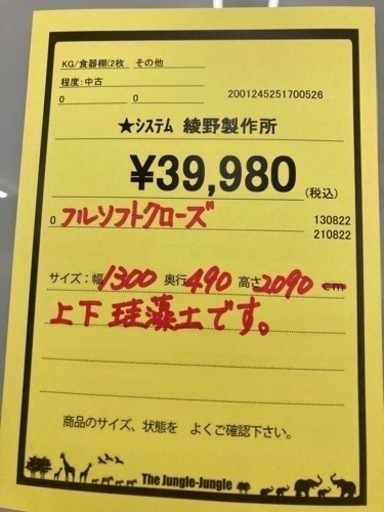 KG/食器棚(2枚 その他
程度:中古
0 0 2001245251700526
★ｼｽﾃﾑ 綾野製作所
¥39,980
(税込)
0 フルソフトクローズ 130822
210822
サイズ:幅1300 奥行490 高さ2090 cm
上下珪藻土です。
商品のサイズ、状態を よくご確認下さい。
The Jungle-Jungle